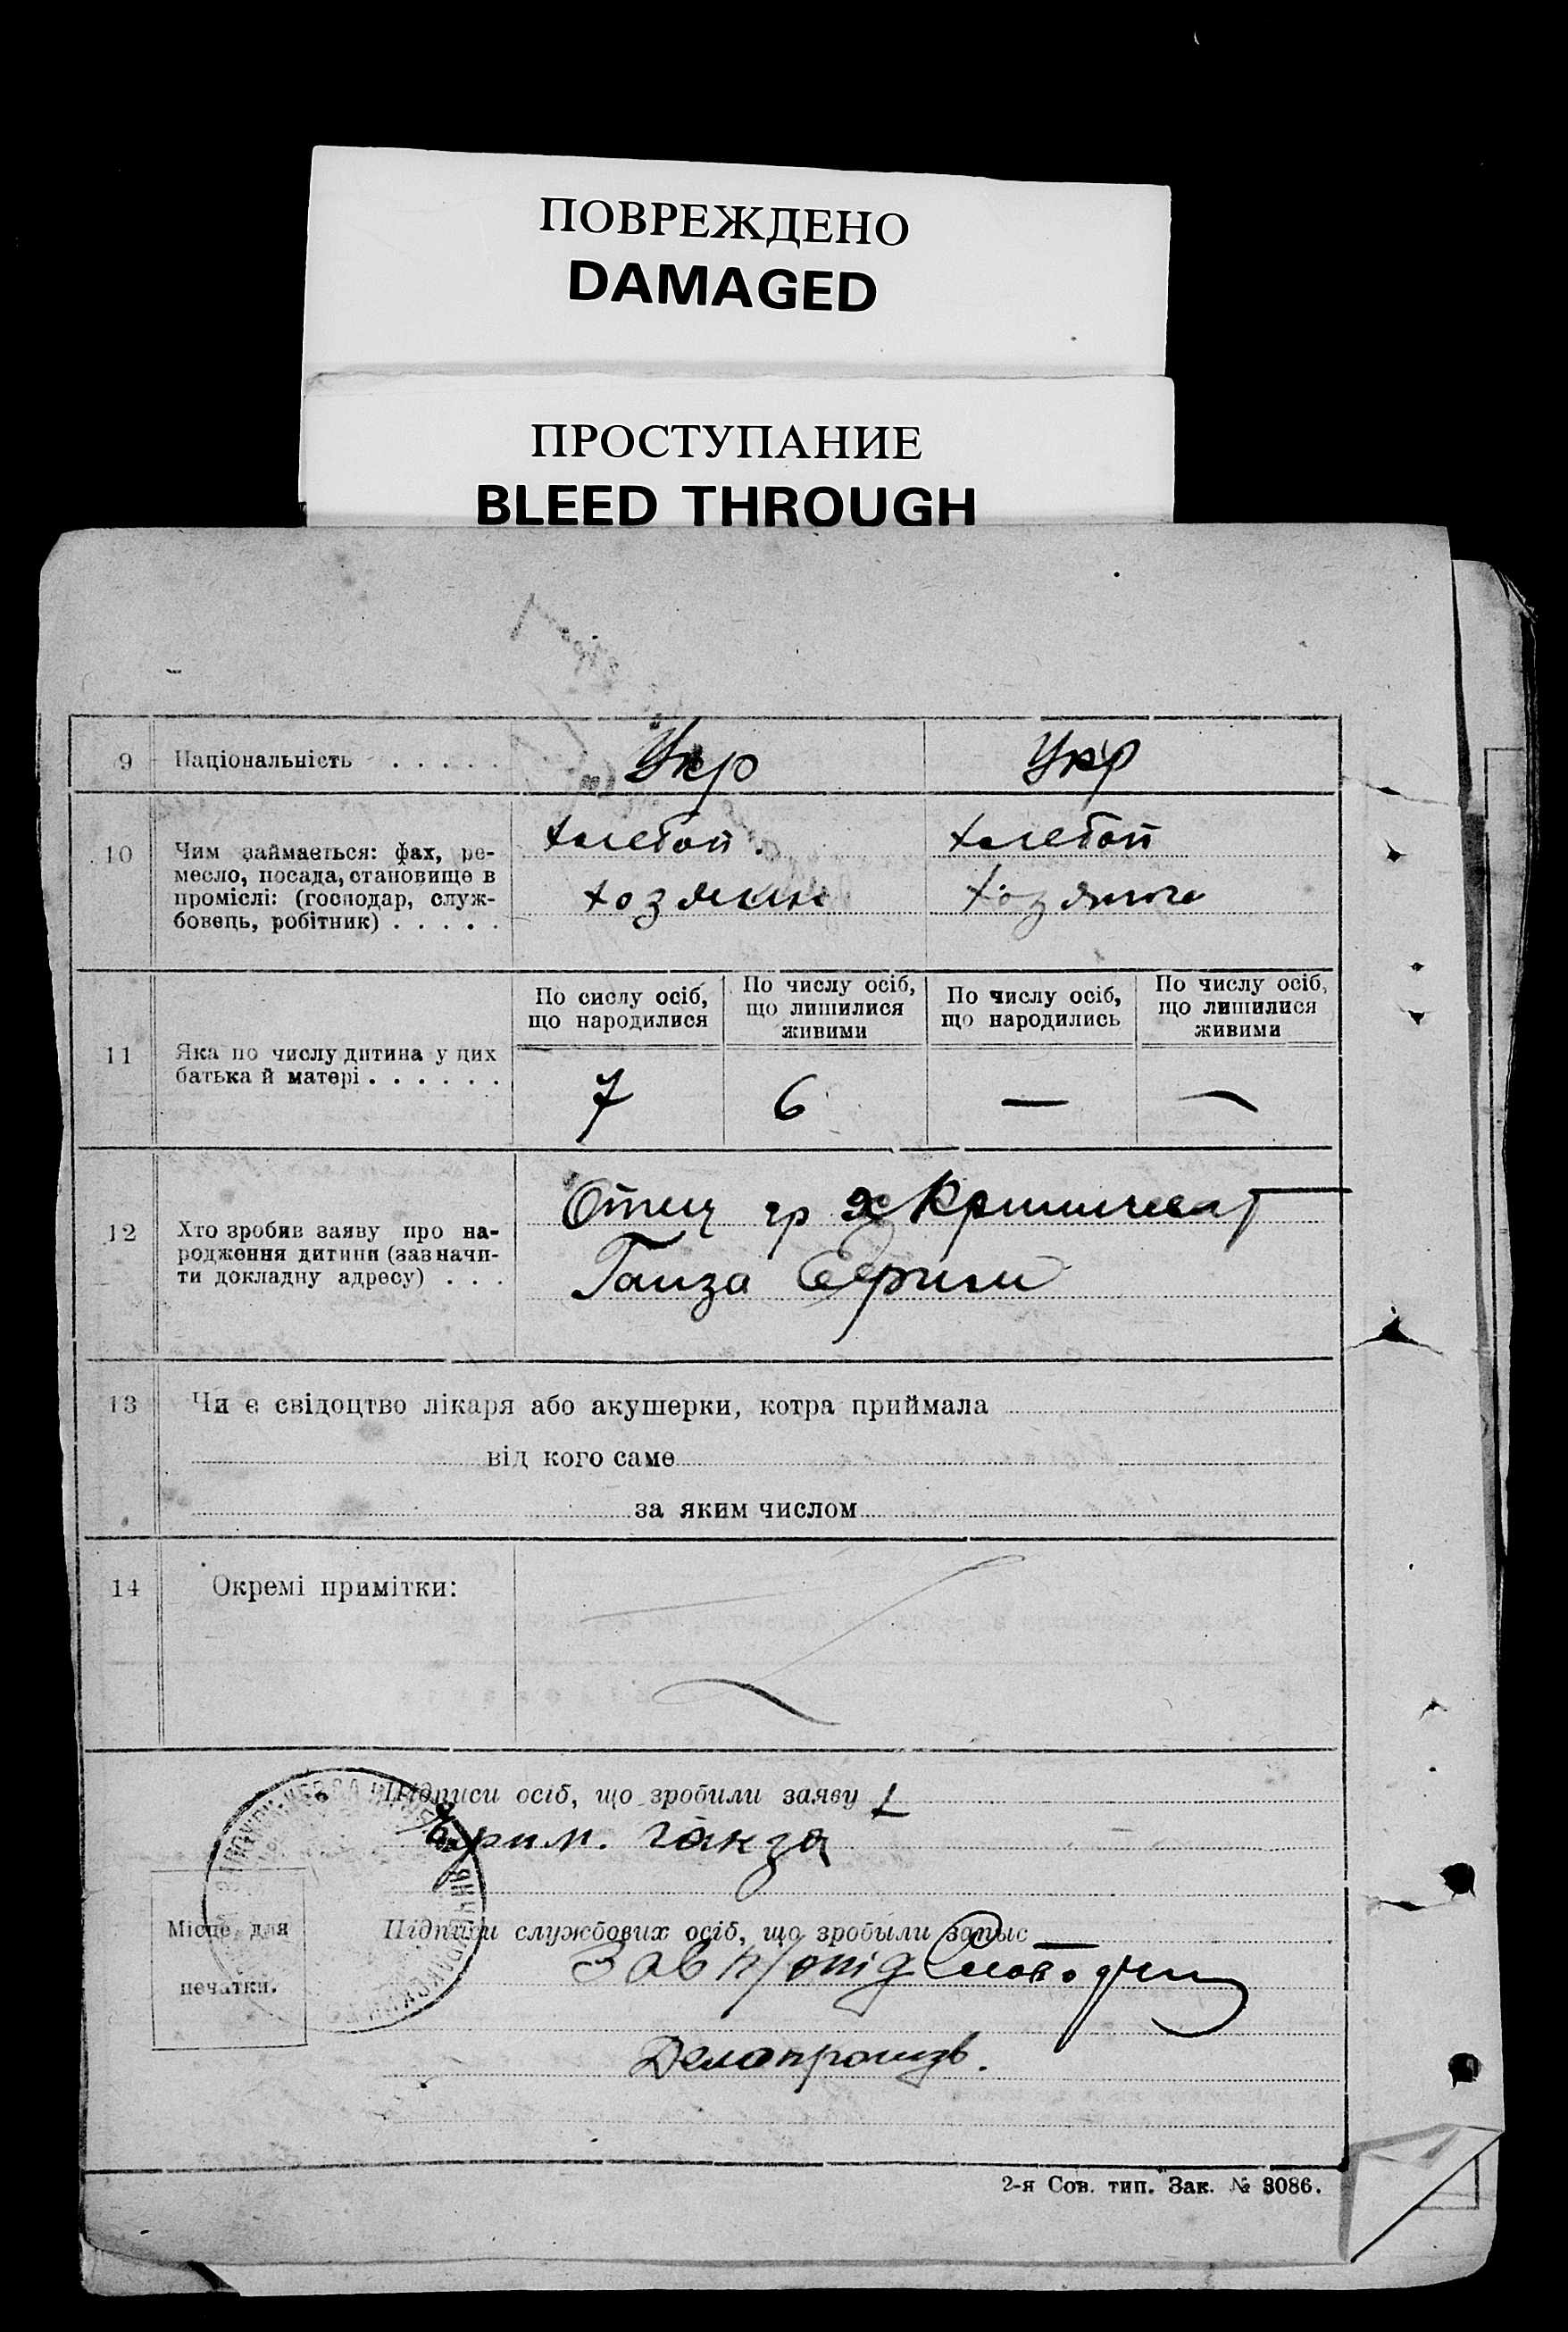 ПОВРЕЖДЕНО
DAMAGED
ПРОСТУПАНИЕ
BLEED THROUGH
9 Національність . . . . . Укр Укр
10 Чим займається: фах, ре-
месло, посада, становище в
проміслі: (господар, служ-
бовець, робітник) . . . . .
хлебоп. хлебоп
хозяин хозяин
По сислу осіб,
що народилися
По числу осіб,
що лишилися
живими
По числу осіб,
що народились
По числу осіб,
що лишилися
живими
11 Яка по числу дитина у цих
батька й матері . . . . . .
7 6 — —
12 Хто зробив заяву про на-
родження дитини (зазначи-
ти докладну адресу) . . .
Отец гр х
Ганза Ефрим
13 Чи є свідоцтво лікаря або акушерки, котра приймала
від кого саме
за яким числом
14 Окремі примітки:
Підписи осіб, що зробили заяву
Ефрим. Ганза
Місце для
печатки.
Підписи службових осіб, що зробыли запыс
Зав п/отд
Делопроизв.
2-я Сов. тип. Зак. № 3086.